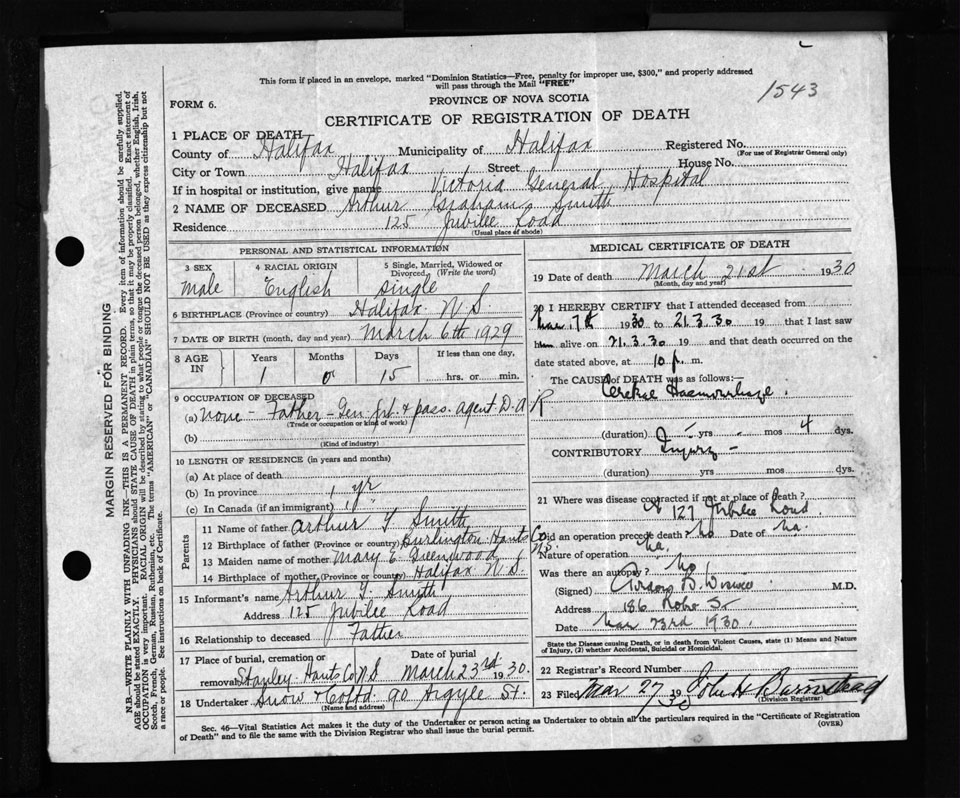 This form if placed in an envelope, marked "Dominion Statistics—Free, penalty for improper use, $300," and properly addressed
will pass through the Mail "FREE"
1543
FORM 6.
PROVINCE OF NOVA SCOTIA
CERTIFICATE OF REGISTRATION OF DEATH
MARGIN RESERVED FOR BINDING
N.B.—WRITE PLAINLY WITH UNFADING INK—THIS IS A PERMANENT RECORD. Every item of information should be carefully supplied.
AGE should be stated EXACTLY. PHYSICIANS should STATE CAUSE OF DEATH in plain terms, so that it may be properly classified. Exact statement of
OCCUPATION is very important. RACIAL ORIGIN will be described by stating to what people or tongue the deceased person belonged, whether English, Irish,
Scotch, French, German, Russian, Ruthenian, etc. The terms "AMERICAN" or "CANADIAN" SHOULD NOT BE USED as they express citizenship but not
a race or people. See instructions on back of Certificate.
1 PLACE OF DEATH
County of Halifax Municipality of Halifax Registered No.
(For use of Registrar General only)
City or Town Halifax Street House No.
If in hospital or institution, give name Victoria General Hospital
2 NAME OF DECEASED Arthur Graham Smith
Residence 125 Jubilee Road
(Usual place of abode)
PERSONAL AND STATISTICAL INFORMATION
3 SEX
Male
4 RACIAL ORIGIN
English
5 Single, Married, Widowed or
Divorced (Write the word)
Single
6 BIRTHPLACE (Province or country) Halifax N S
7 DATE OF BIRTH (month, day and year) March 6th 1929
8 AGE IN
Years Months Days If less than one day,
1 0 15 hrs. or min.
9 OCCUPATION OF DECEASED
(a) None - Father - Gen frt & pass. agent D.A R
(Trade or occupation or kind of work)
(b)
(Kind of industry)
10 LENGTH OF RESIDENCE (in years and months)
(a) At place of death
(b) In province 1 yr
(c) In Canada (if an immigrant) 1 "
Parents
11 Name of father Arthur Y Smith
12 Birthplace of father (Province or country) Burlington Hants Co N.S.
13 Maiden name of mother Mary E Greenwood
14 Birthplace of mother (Province or country) Halifax N.S.
15 Informant's name Arthur Y. Smith
Address 125 Jubilee Road
16 Relationship to deceased Father
17 Place of burial, cremation or Date of burial
removal Stanley Hants Co N S March 23rd 1930.
18 Undertaker Snow & Co Ltd 90 Argyle St.
(Name and address)
MEDICAL CERTIFICATE OF DEATH
19 Date of death March 21st 1930
(Month, day and year)
20 I HEREBY CERTIFY that I attended deceased from
Mar 17th 1930 to 21.3.30 19 that I last saw
him alive on 21.3.30 19 and that death occurred on the
date stated above, at 10 p. m.
The CAUSE of DEATH was as follows:—
Haemorrhage.
(duration) yrs mos 4 dys.
CONTRIBUTORY Injury -
(duration) yrs mos dys.
21 Where was disease contracted if not at place of death?
127 Jubilee Road
Did an operation precede death? No Date of na.
Nature of operation na.
Was there an autopsy? No
(Signed) M.D.
Address 186 St
Date Mar 23rd 1930.
State the Disease causing Death, or in death from Violent Causes, state (1) Means and Nature
of Injury, (2) whether Accidental, Suicidal or Homicidal.
22 Registrar's Record Number
23 Filed Mar 27 1930 John H Barnstead
(Division Registrar)
Sec. 46—Vital Statistics Act makes it the duty of the Undertaker or person acting as Undertaker to obtain all the particulars required in the "Certificate of Registration
of Death" and to file the same with the Division Registrar who shall issue the burial permit.
(OVER)